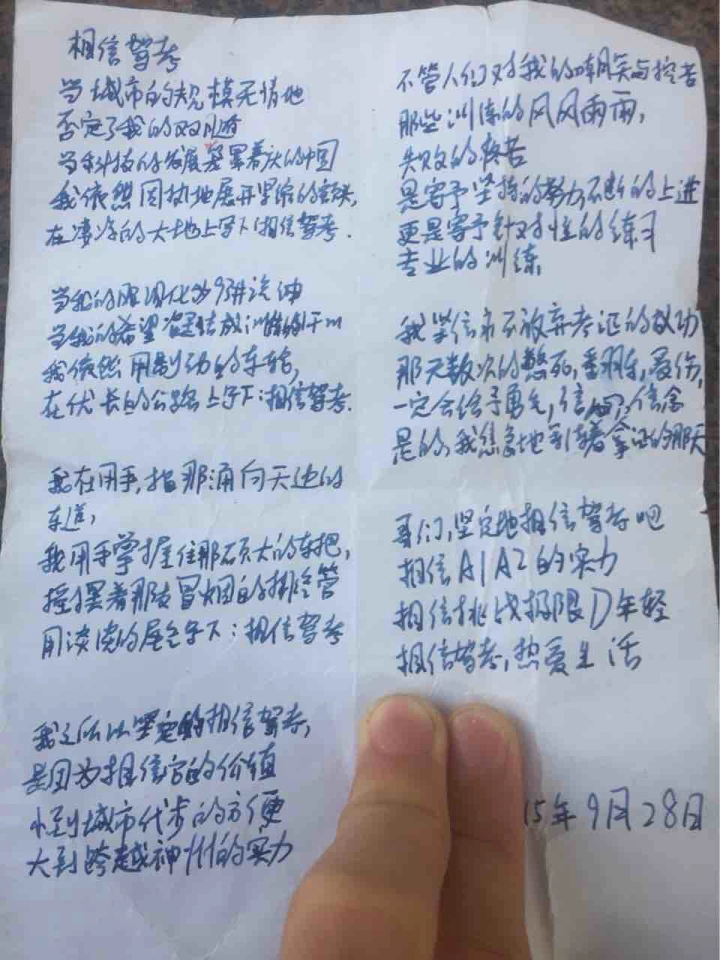 相信驾考
当城市的规模无情地
否定了我的
当科技的发展着的中国
我依然固执地展开坚强的额头,
在凄冷的大地上写下:相信驾考.
当我的眼泪化为
当我的希望凝结成训练的
我依然用制动的车轮,
在伏长的公路上写下:相信驾考.
我在用手,指那涌向天边的
车道,
我用手掌握住那硕大的车把,
摇摆着那支冒烟的排经管
用淡淡的尾气写下:相信驾考
我之所以坚定的相信驾考,
是因为相信它的价值
小到城市代步的方便
大到跨越神州的实力
不管人们对我的嘲笑与挖苦
那些训练的风风雨雨,
失败的痛苦
是寄予坚持的努力,不断的上进
更是寄予针对性的练习
专业的训练
我坚信永不放弃考证的成功
那无数次的憋死,翻车,受伤,
一定会给予勇气,信心,信念
是的,我焦急地等待着拿证的那天
哥们,坚定地相信驾考吧
相信A1A2的实力
相信挑战极限D年轻
相信驾考,热爱生活
15年9月28日